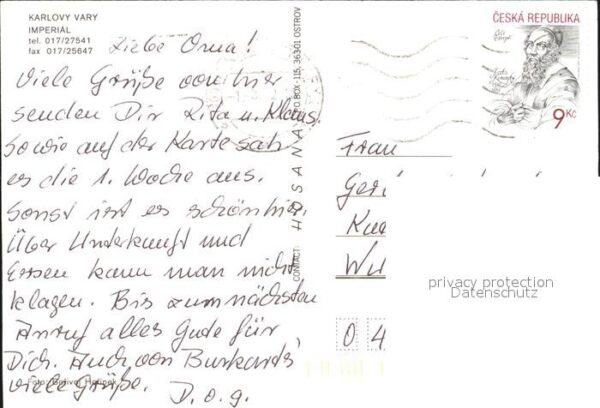 KARLOVY VARY
IMPERIAL
tel. 017/27541
fax 017/25647
Liebe Oma!
Viele Grüße von hier
senden Dir Rita u. Klaus.
Sowie auf der Karte sah
es die 1. Woche aus.
Sonst ist es schön hier.
Über Unterkunft und
Essen kann man nicht
klagen. Bis zum nächsten
Anruf alles Gute für
Dich. Auch von Burkards'
viele Grüße.
D. o. g.
CONTACT: HOSANA P.O.BOX - 115, 36301 OSTROV
ČESKÁ REPUBLIKA
9 Kč
Frau
0 4
privacy protection
Datenschutz